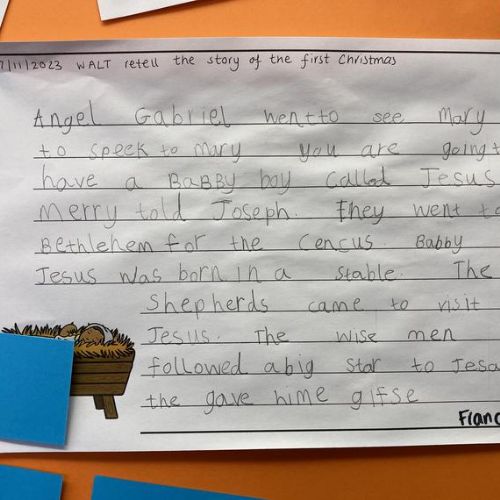 7/11/2023 WALT retell the story of the first Christmas
Angel Gabriel wentto see Mary
to speek to Mary you are going t
have a BaBBy boy called Jesus
Merry told Joseph. They went to
Bethlehem for the Cencus. Babby
Jesus was born in a stable. The
Shepherds came to visit
Jesus. The wise men
followed a big star to Jesa
the gave hime gifse
Franc